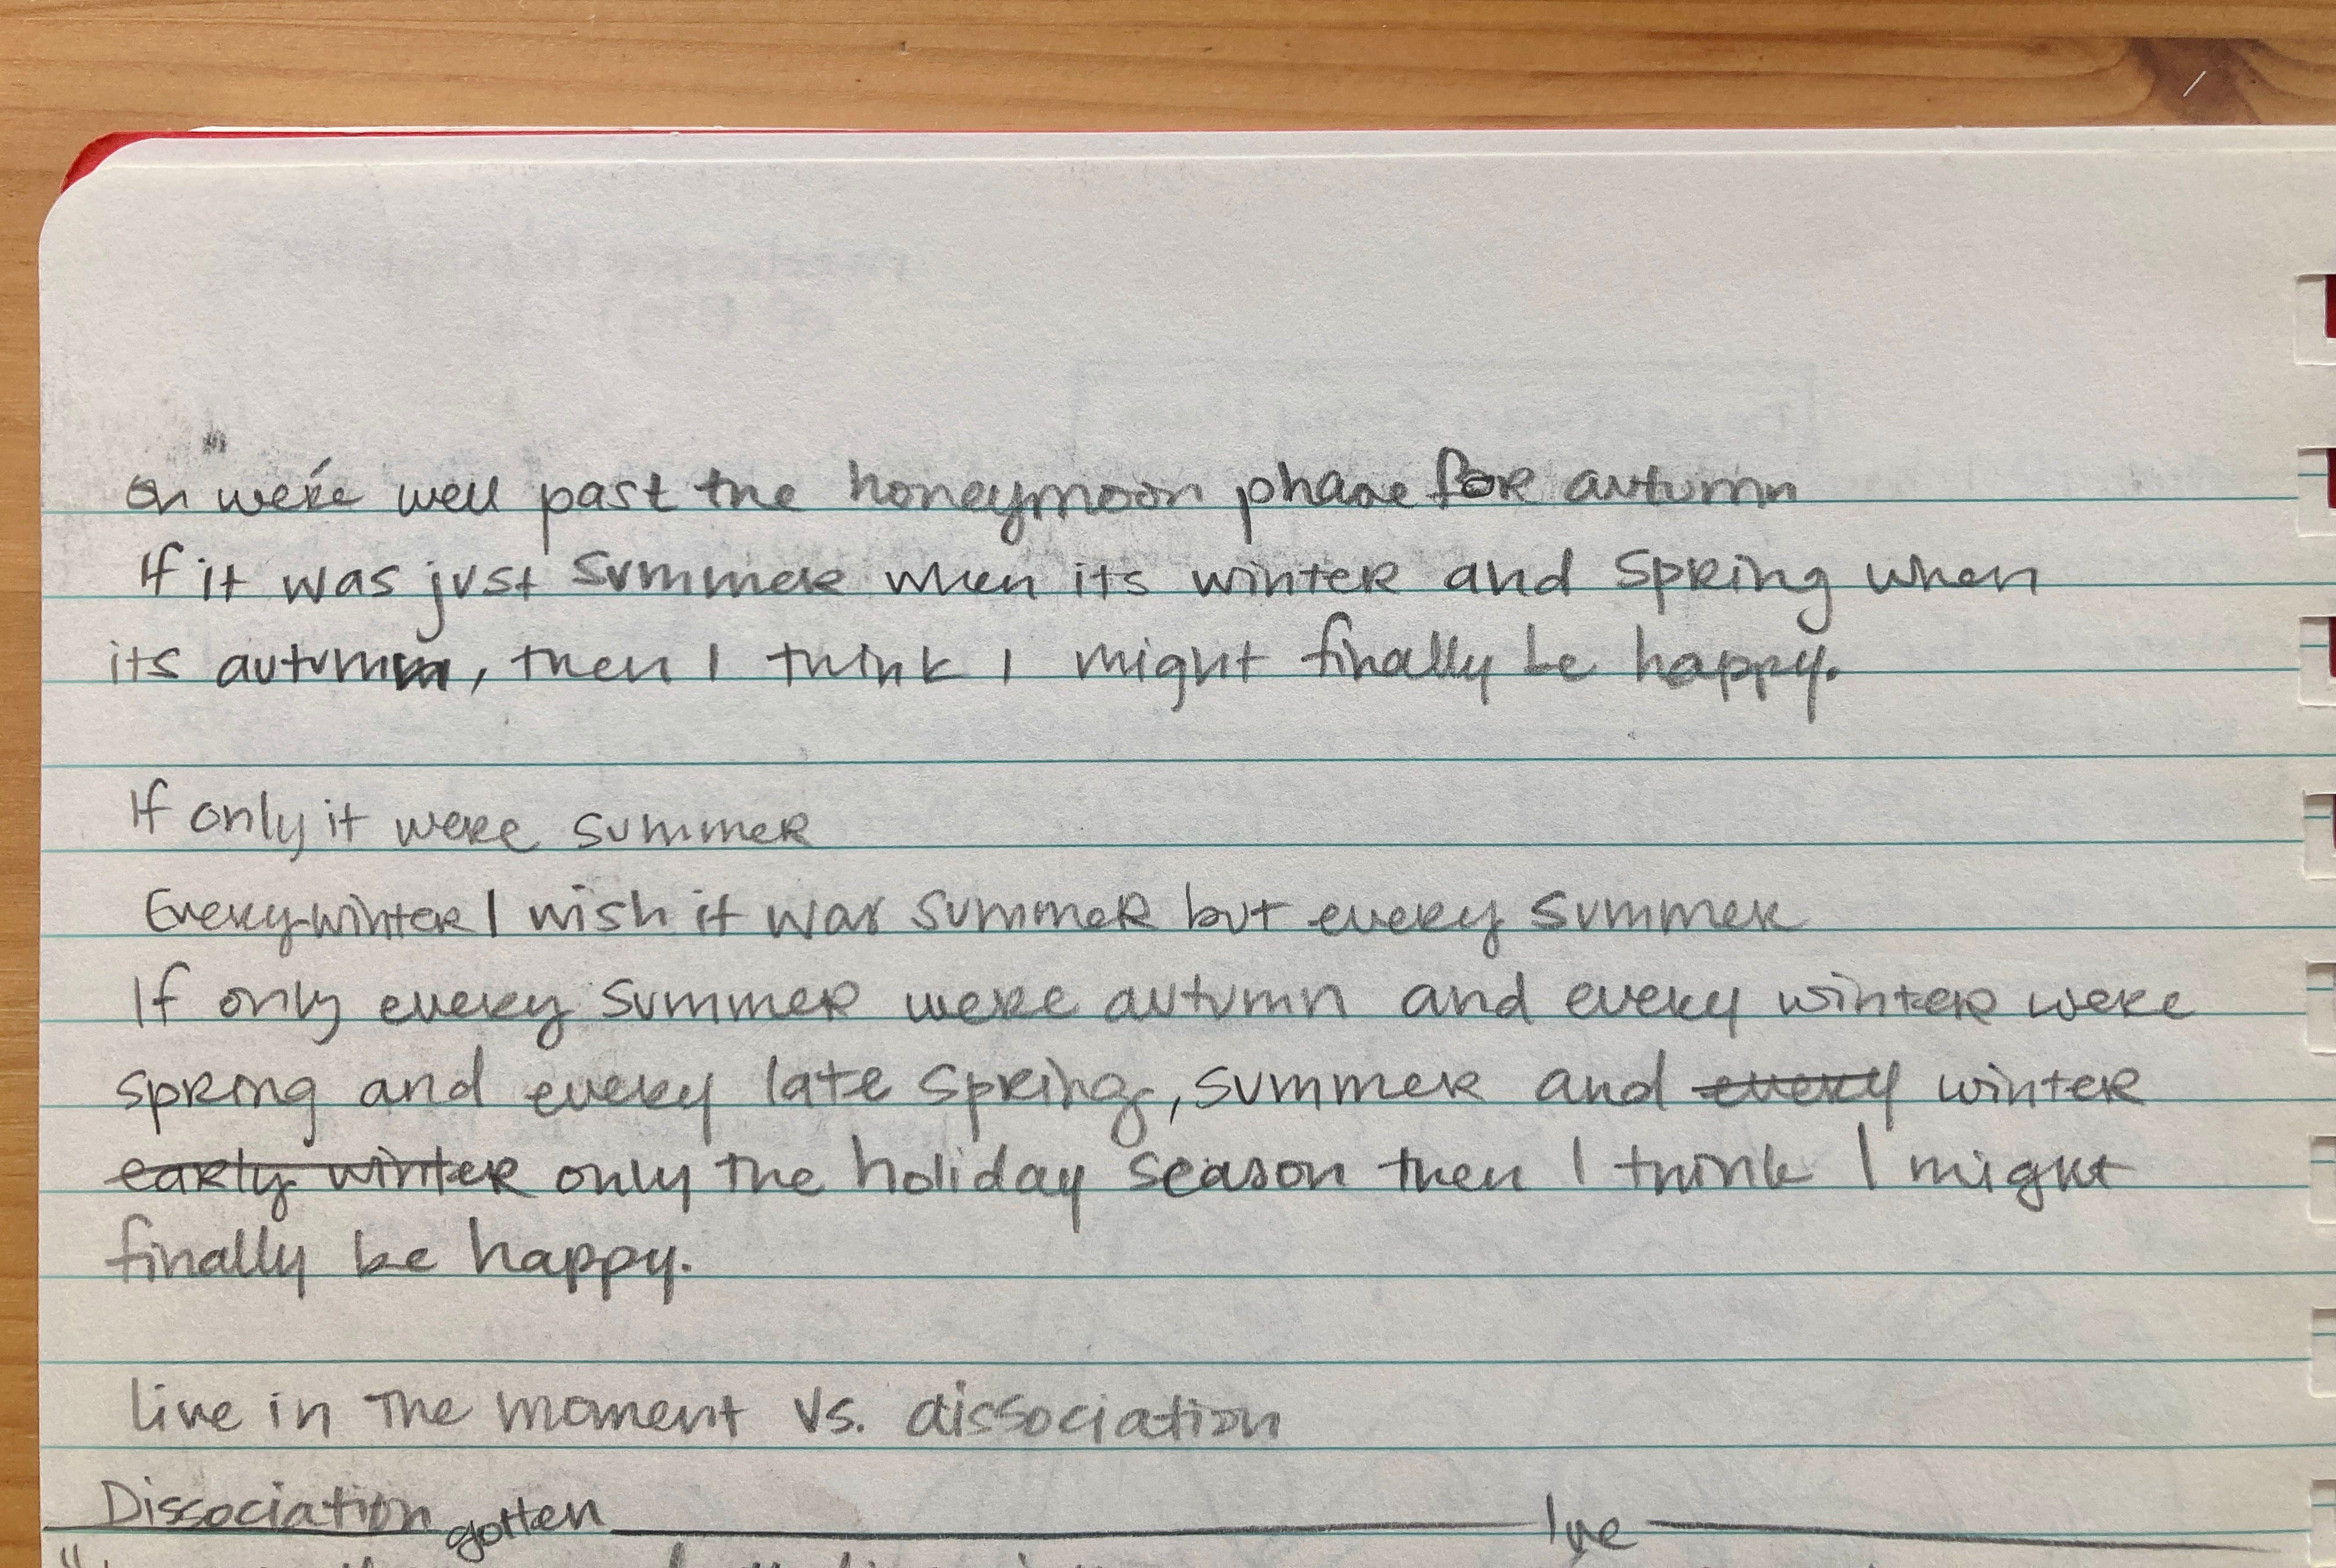 Oh we're well past the honeymoon phase for autumn
If it was just summer when its winter and spring when
its autumn, then I think I might finally be happy.
If only it were summer
Every winter I wish it was summer but every summer
If only every summer were autumn and every winter were
spring and every late spring, summer and every winter
early winter only the holiday season then I think I might
finally be happy.
live in the moment vs. dissociation
Dissociation gotten I've